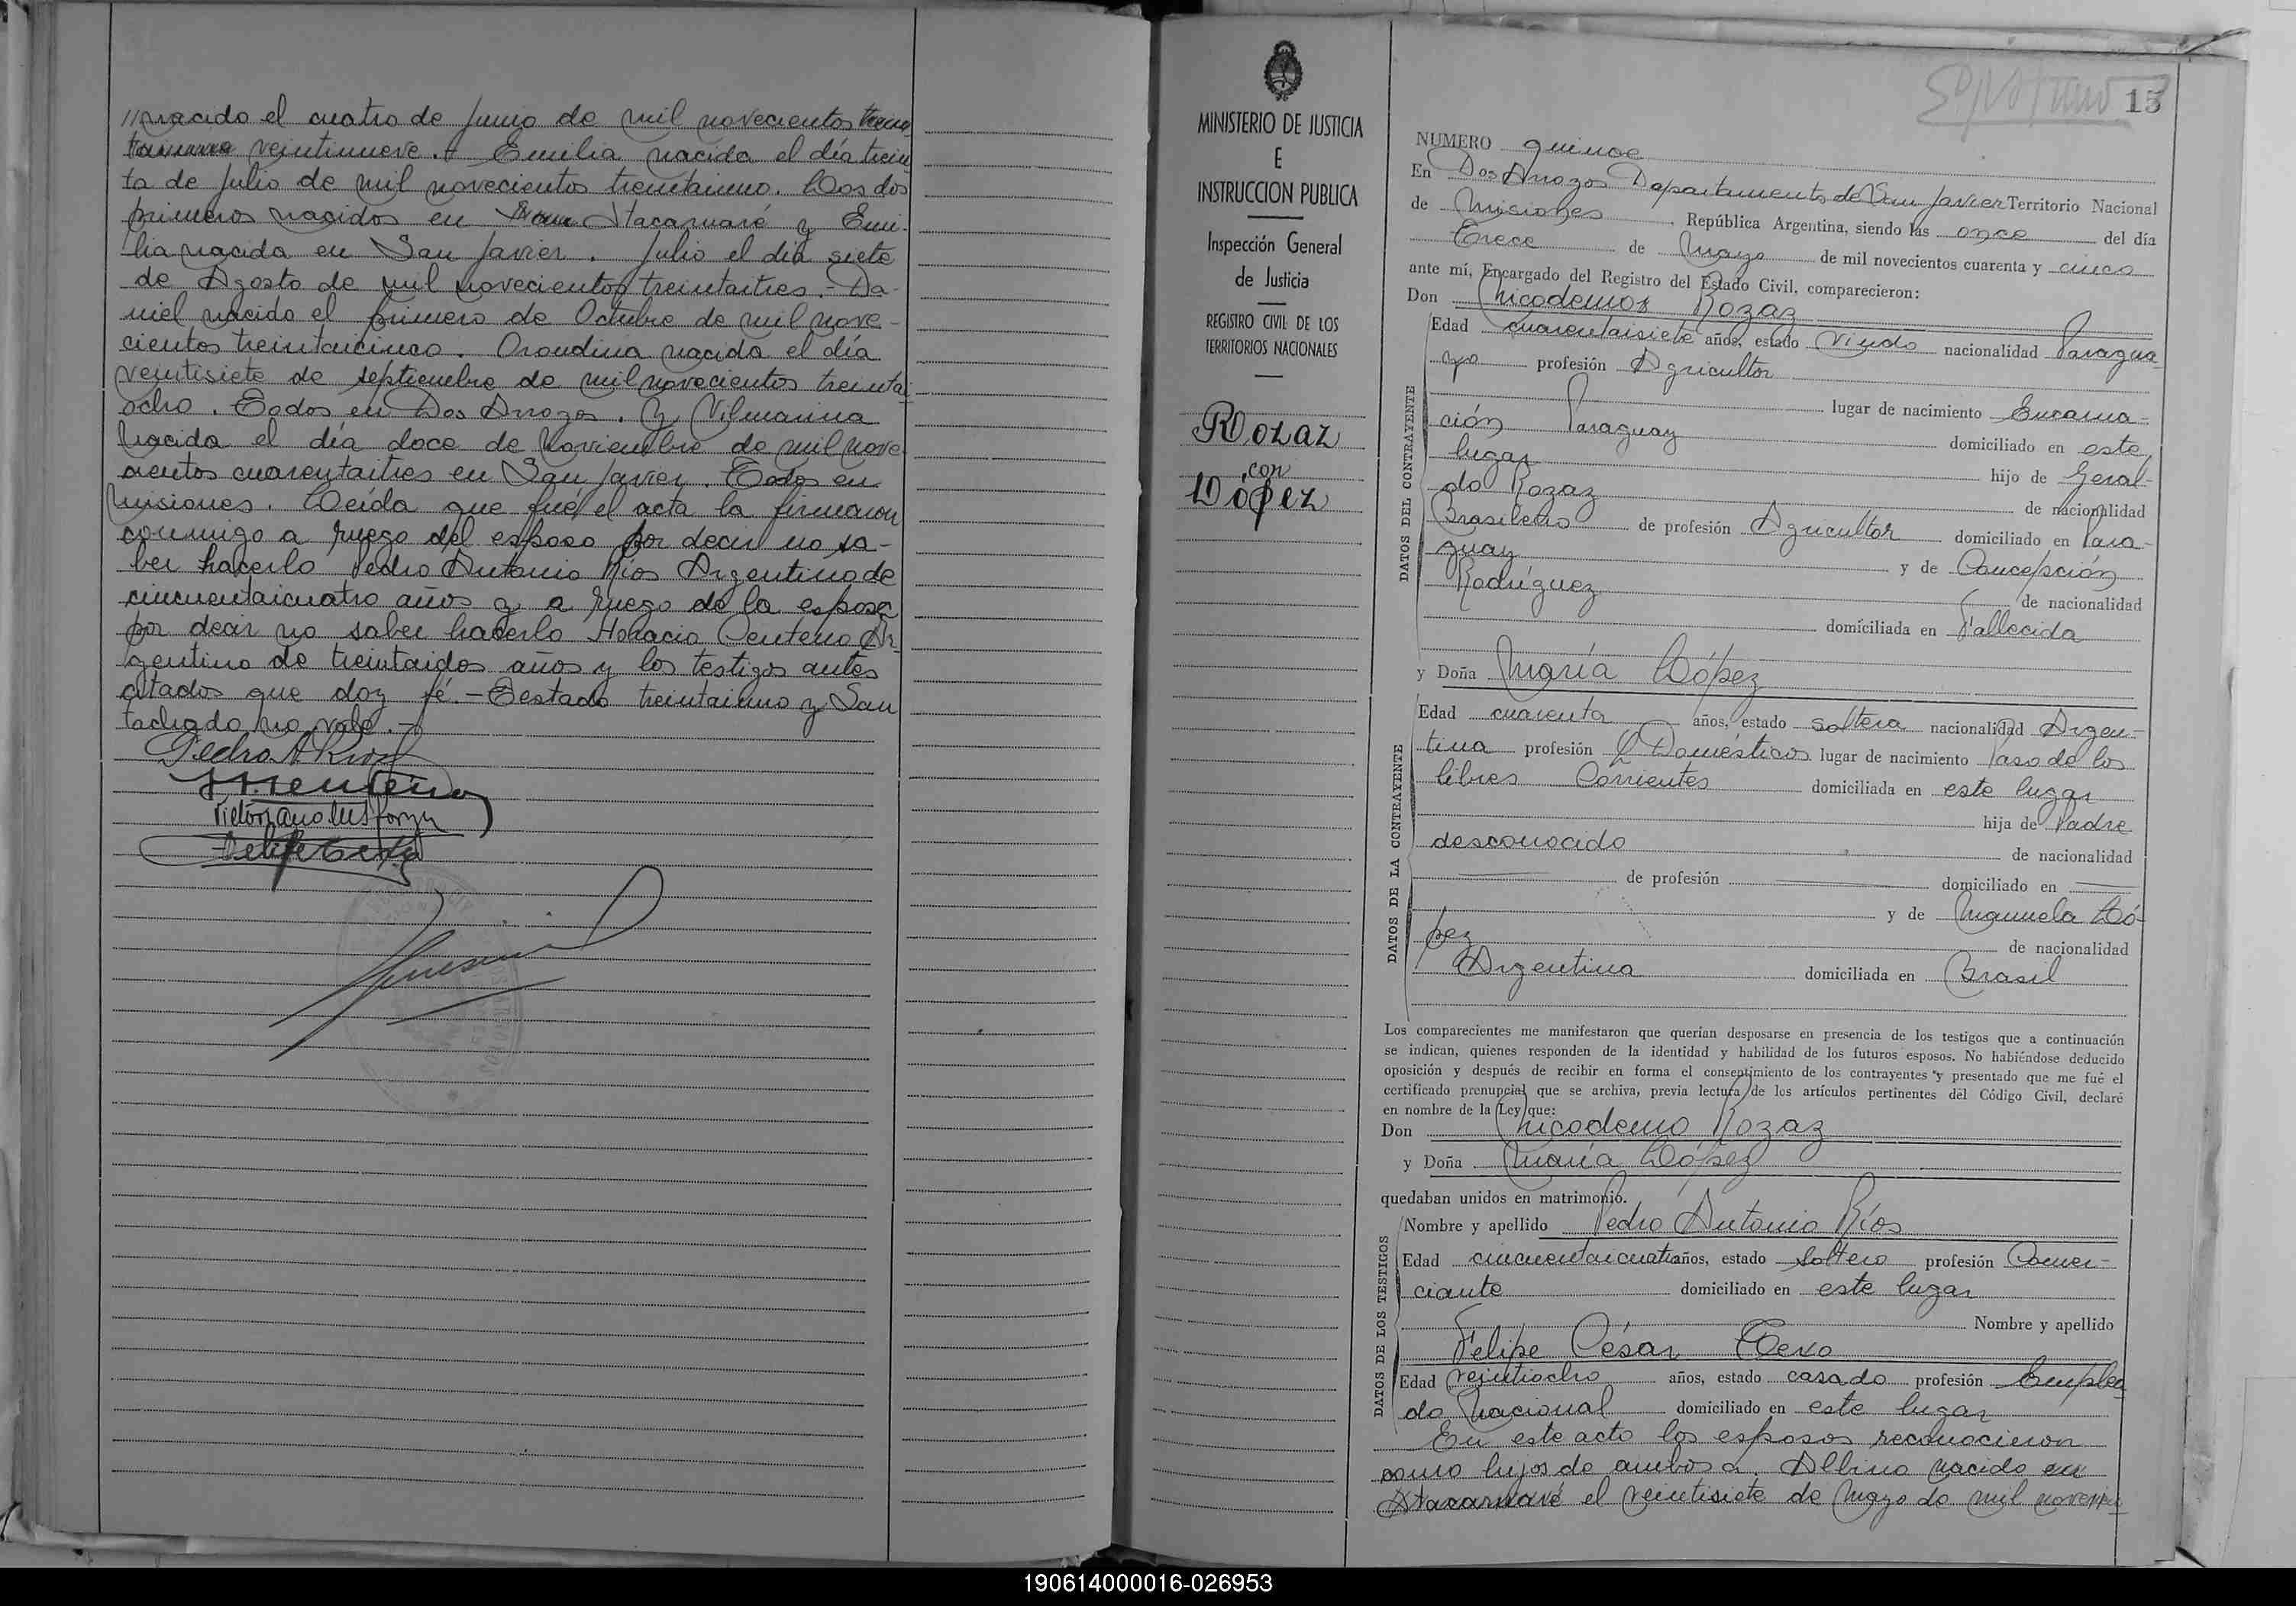 // nacido el cuatro de Junio de mil novecientos
veintinueve. Emilia nacida el día trein
ta de Julio de mil novecientos treintaiuno. Los dos
primeros nacidos en Itacaruaré y Emi-
lia nacida en San Javier. Julio el día siete
de Agosto de mil novecientos treintaitres.- Da-
niel nacido el primero de Octubre de mil nove-
cientos treintaicinco. Orondina nacida el día
veintisiete de septiembre de mil novecientos treintai
ocho. Todos en Dos Arroyos. y Vilmarina
nacida el día doce de Noviembre de mil nove
cientos cuarentaitres en San Javier. Todos en
Misiones. Leída que fué el acta la firmaron
conmigo a ruego del esposo por decir no sa-
ber hacerlo Pedro Antonio Ríos Argentino de
cincuentaicuatro años y a ruego de la esposa
por decir no saber hacerlo Horacio Centeno Ar-
gentino de treintaidos años y los testigos antes
citados que doy fé.- Testado treintaiuno y San
tachado no vale.-
Pedro A Rios
MINISTERIO DE JUSTICIA
E
INSTRUCCION PUBLICA
Inspección General
de Justicia
REGISTRO CIVIL DE LOS
TERRITORIOS NACIONALES
Rozaz
con
López
15
NUMERO quince
En Dos Arroyos Departamento de San Javier Territorio Nacional
de Misiones República Argentina, siendo las once del día
Trece de Mayo de mil novecientos cuarenta y cinco
ante mí, Encargado del Registro del Estado Civil, comparecieron:
Don Nicodemos Rozaz
DATOS DEL CONTRAYENTE
Edad cuarentaisiete años, estado Viudo nacionalidad Paragua
yo profesión Agricultor
lugar de nacimiento Encarna-
ción Paraguay domiciliado en este
lugar hijo de Geral-
do Rozaz de nacionalidad
Brasilero de profesión Agricultor domiciliado en Para-
guay y de Concepción
Rodríguez de nacionalidad
domiciliada en Fallecida
y Doña María López
DATOS DE LA CONTRAYENTE
Edad cuarenta años, estado soltera nacionalidad Argen-
tina profesión Q Domésticos lugar de nacimiento Paso de los
libres Corrientes domiciliada en este lugar
hija de Padre
desconocido de nacionalidad
de profesión domiciliado en
y de Manuela Ló-
pez de nacionalidad
Argentina domiciliada en Brasil
Los comparecientes me manifestaron que querían desposarse en presencia de los testigos que a continuación
se indican, quienes responden de la identidad y habilidad de los futuros esposos. No habiéndose deducido
oposición y después de recibir en forma el consentimiento de los contrayentes y presentado que me fué el
certificado prenupcial que se archiva, previa lectura de los artículos pertinentes del Código Civil, declaré
en nombre de la Ley que:
Don Nicodemo Rozaz
y Doña María López
quedaban unidos en matrimonio.
DATOS DE LOS TESTIGOS
Nombre y apellido Pedro Antonio Ríos
Edad cincuentaicuatro años, estado soltero profesión Comer-
ciante domiciliado en este lugar
Nombre y apellido
Felipe César Texo
Edad veintiocho años, estado casado profesión Emplea
do Nacional domiciliado en este lugar
En este acto los esposos reconocieron
como hijos de ambos a, Albino nacido en
Itacaruaré el veintisiete de Mayo de mil novecien
190614000016-026953